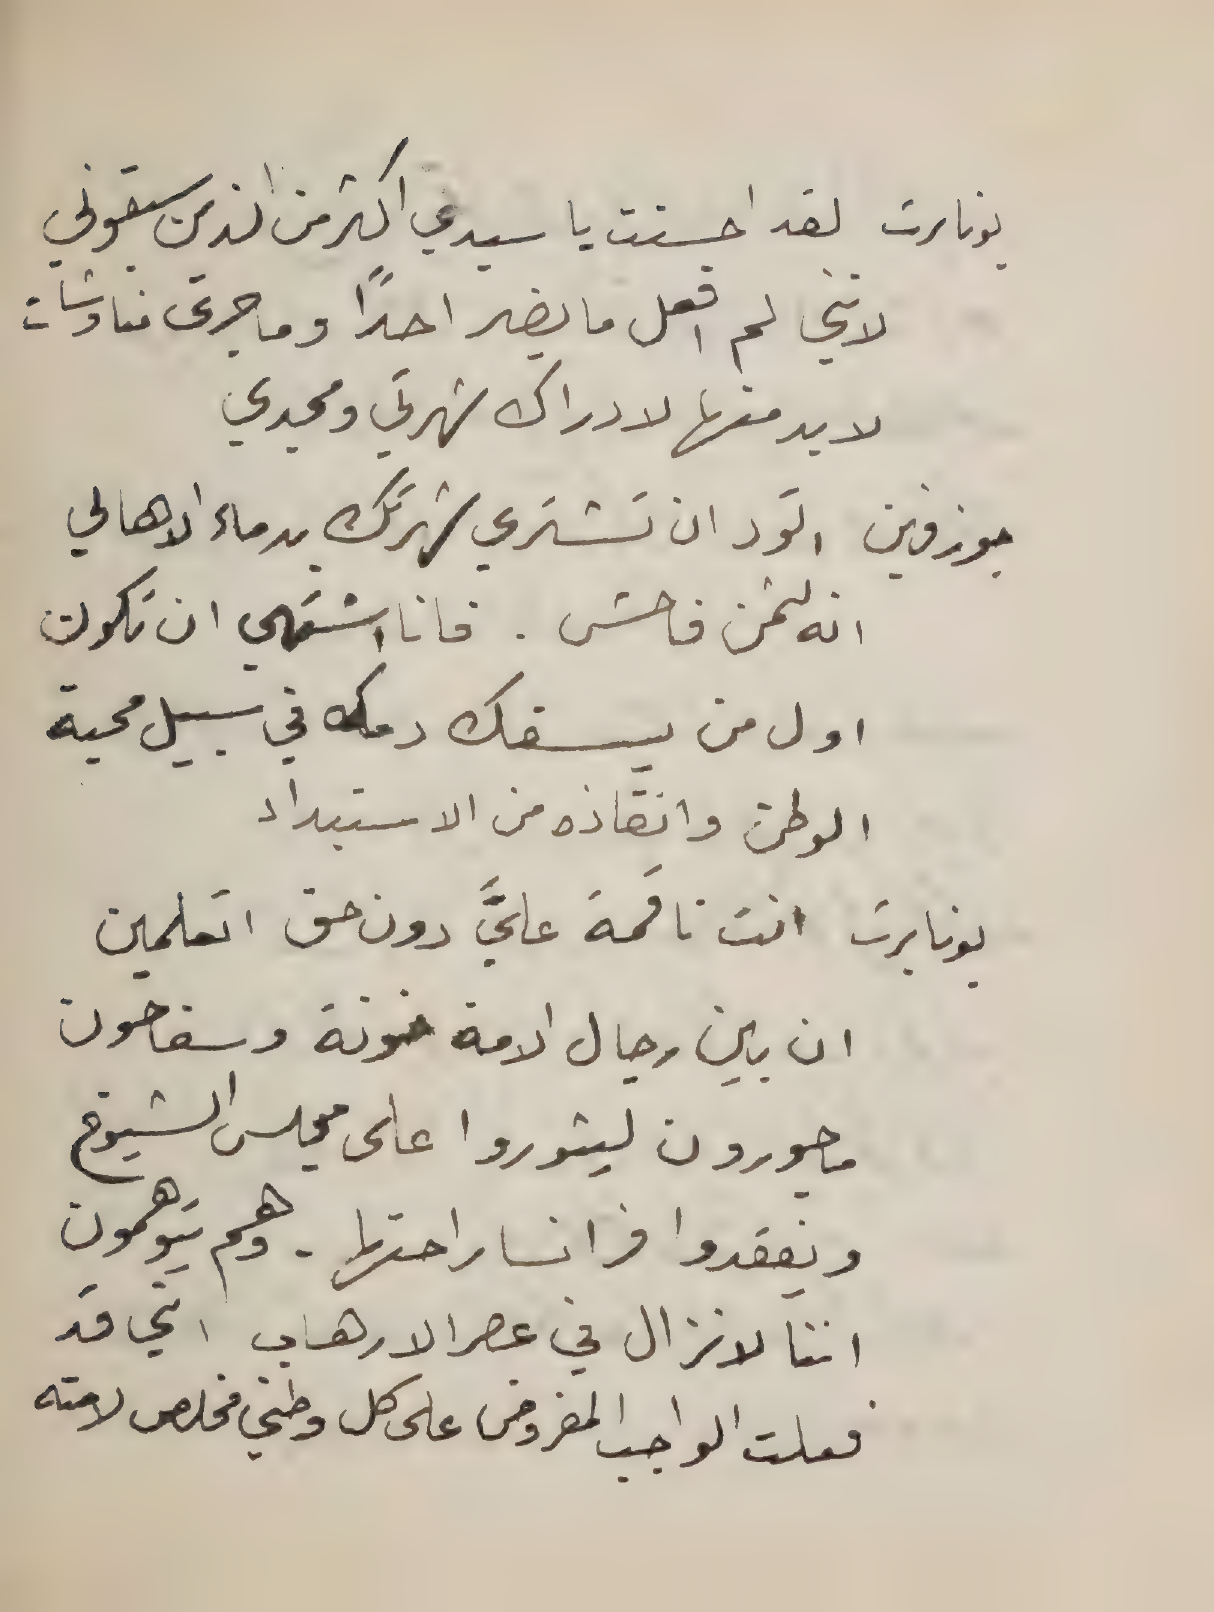 بونابرت لقد احسنت يا سيدي اكثر من الذين سبقوني
لانني لم افعل ما يضر احدًا وما جرى مناوشات
لا بد منها لادراك شهرتي ومجدي
جوزفين اتود ان تشتري شهرتك بدماء الاهالي
انه لثمن فاحش . فانا اشتهي ان تكون
اول من يسفك دمك في سبيل محبة
الوطن وانقاذه من الاستبداد
بونابرت انت ناقمة عليَّ دون حق اتعلمين
ان بين رجال الامة خونة وسفاحون
ماجورون ليثوروا على مجلس الشيوخ
ويفقدوا فرانسا راحتها . وهم يتوهمون
اننا لا نزال في عصر الارهاب انني قد
فعلت الواجب المفروض على كل وطني مخلص لامته